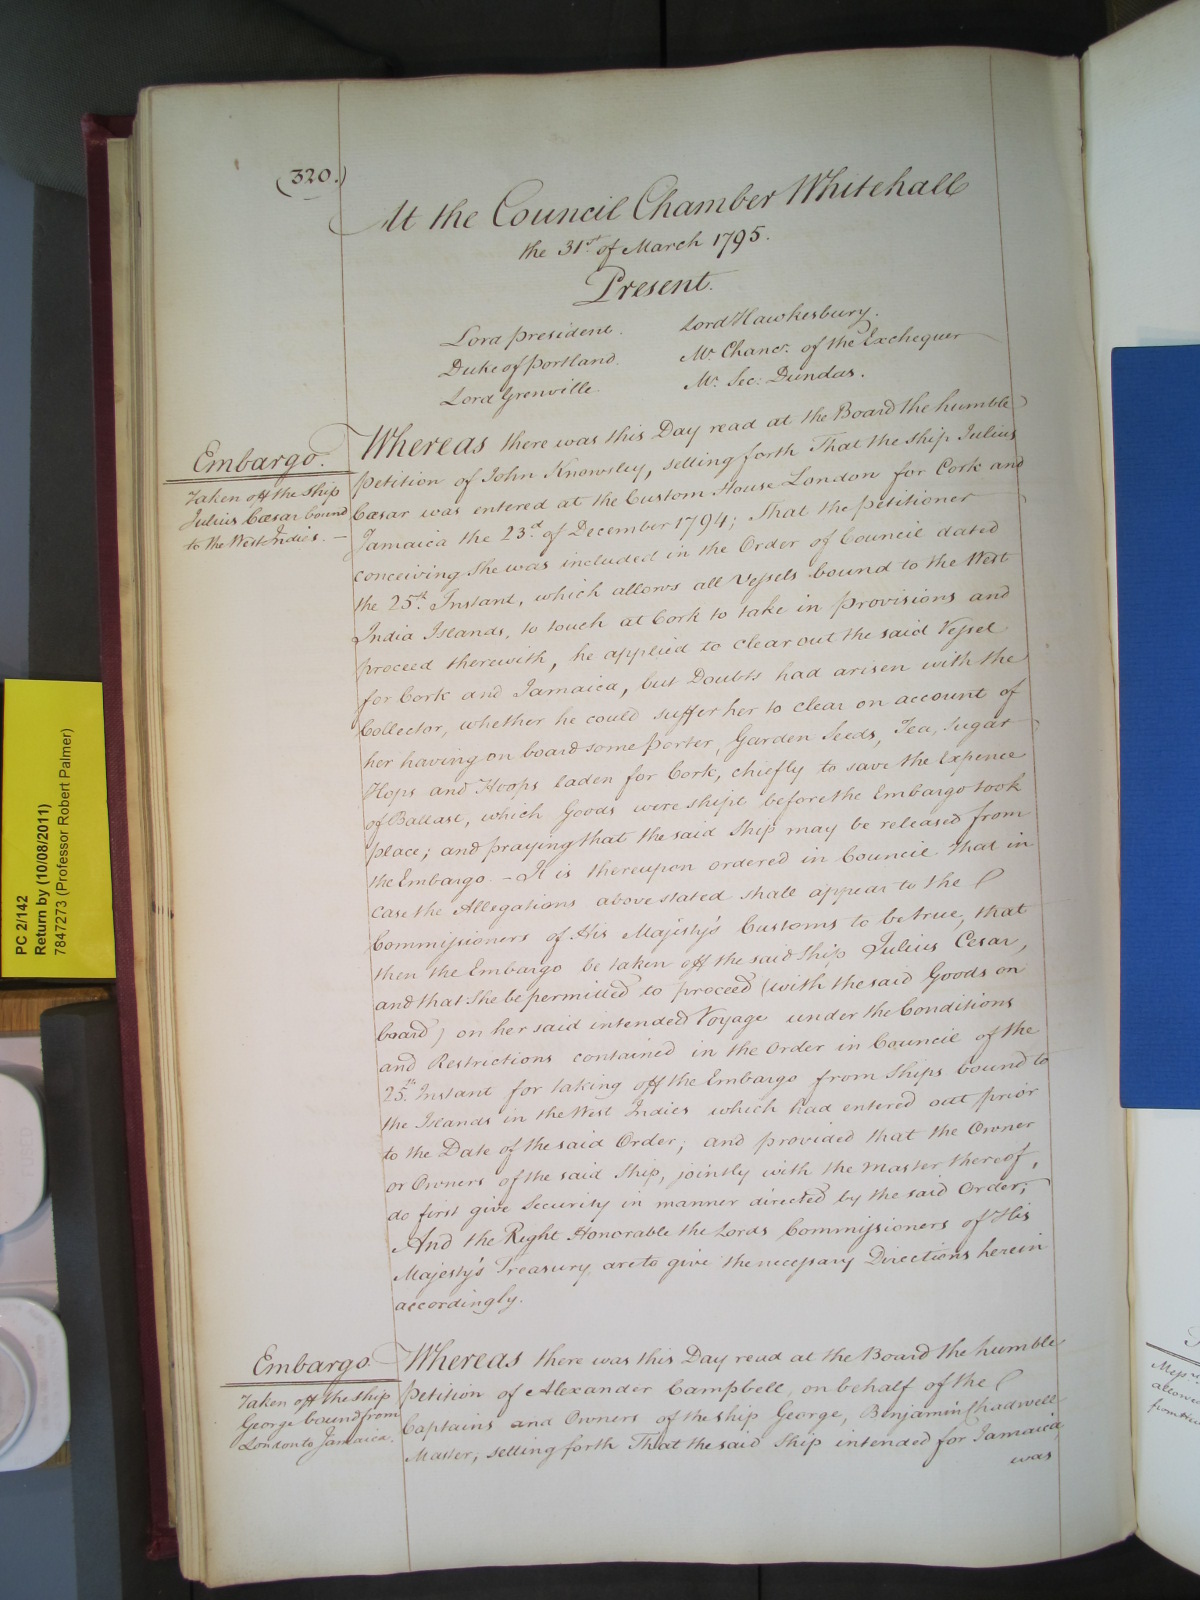 (320.)
At the Council Chamber Whitehall
the 31st of March 1795.
Present.
Lord President.
Duke of Portland.
Lord Grenville.
Lord Hawkesbury.
Mr. Chancr. of the Exchequer
Mr. Sec: Dundas.
Embargo.
Taken off the Ship
Julius Cæsar bound
to the West Indies. —
Whereas there was this Day read at the Board the humble
Petition of John Knowsley, setting forth That the Ship Julius
Cæsar was entered at the Custom House London for Cork and
Jamaica the 23d of December 1794; That the Petitioner
conceiving She was included in the Order of Council dated
the 25th Instant, which allows all Vessels bound to the West
India Islands, to touch at Cork to take in Provisions and
proceed therewith, he applied to clear out the said Vessel
for Cork and Jamaica, but Doubts had arisen with the
Collector, whether he could suffer her to clear on account of
her having on board some Porter, Garden Seeds, Tea, Sugar
Hops and Hoops laden for Cork, chiefly to save the Expence
of Ballast, which Goods were shipt before the Embargo took
place; and praying that the said Ship may be released from
the Embargo. – It is thereupon ordered in Council that in
case the Allegations above stated shall appear to the
Commissioners of His Majesty's Customs to be true, that
then the Embargo be taken off the said Ship Julius Cesar,
and that She be permitted to proceed (with the said Goods on
board) on her said intended Voyage under the Conditions
and Restrictions contained in the Order in Council of the
25th Instant for taking off the Embargo from Ships bound to
the Islands in the West Indies which had entered out prior
to the Date of the said Order; and provided that the Owner
or Owners of the said Ship, jointly with the Master thereof,
do first give Security in manner directed by the said Order;
And the Right Honorable the Lords Commissioners of His
Majesty's Treasury are to give the necessary Directions herein
accordingly.
Embargo.
Taken off the Ship
George bound from
London to Jamaica.
Whereas there was this Day read at the Board the humble
Petition of Alexander Campbell, on behalf of the
Captains and Owners of the Ship George, Benjamin Chadwell
Master; setting forth That the said Ship intended for Jamaica
was
PC 2/142
Return by (10/08/2011)
7847273 (Professor Robert Palmer)